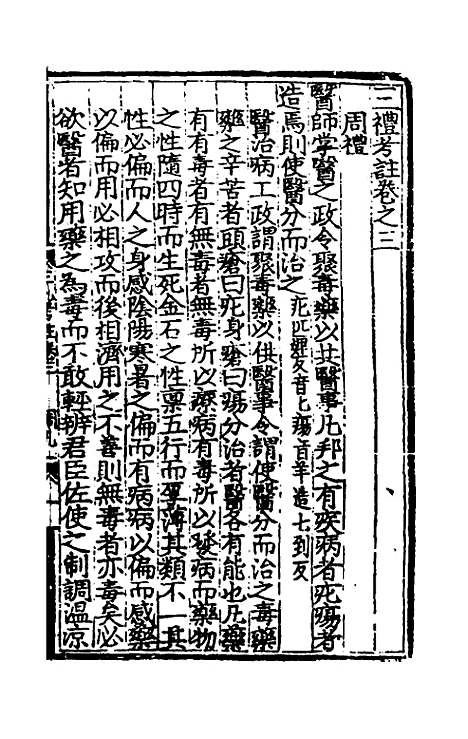 三禮考註卷之三
周禮
醫師掌醫之政令聚毒藥以共醫事凡邦之有疾病者疕瘍者
造焉則使醫分而治之疕匹婢反音匕瘍音羊造七到反
醫治病工政謂聚毒藥以供醫事令謂使醫分而治之毒藥
藥之辛苦者頭瘡曰疕身瘡曰瘍分治者醫各有能也凡藥
有有毒者有無毒者無毒所以療病有毒所以發病而藥物
之性隨四時而生死金石之性稟五行而厚薄其類不一其
性必偏而人之身感陰陽寒暑之偏而有病病以偏而感藥
以偏而用必相攻而後相濟用之不善則無毒者亦毒矣必
欲醫者知用藥之為毒而不敢輕辨君臣佐使之制調溫凉